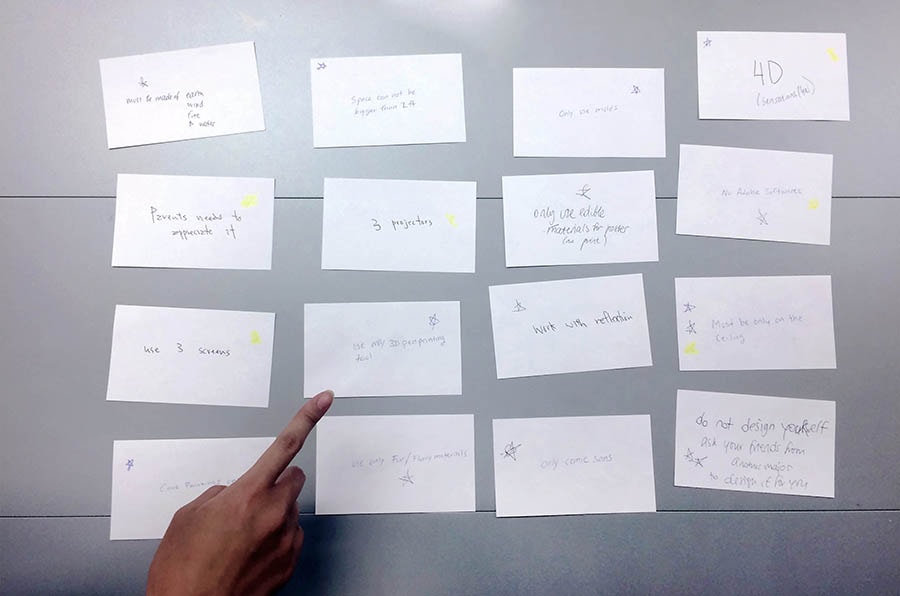 must be made of earth
wind
fire
water
Space can not be
bigger than
Only use
4D
(sensational)
Parents needs to
appreciate it
3 projectors
only use edible
materials for poster
(no print)
No Adobe Softwares
use 3 screens
use only 3D pen printing
tool
work with reflection
Must be only on the
ceiling
Use only Fur/
materials
only comic sans
do not design yourself
ask your friends from
another major
to design it for you